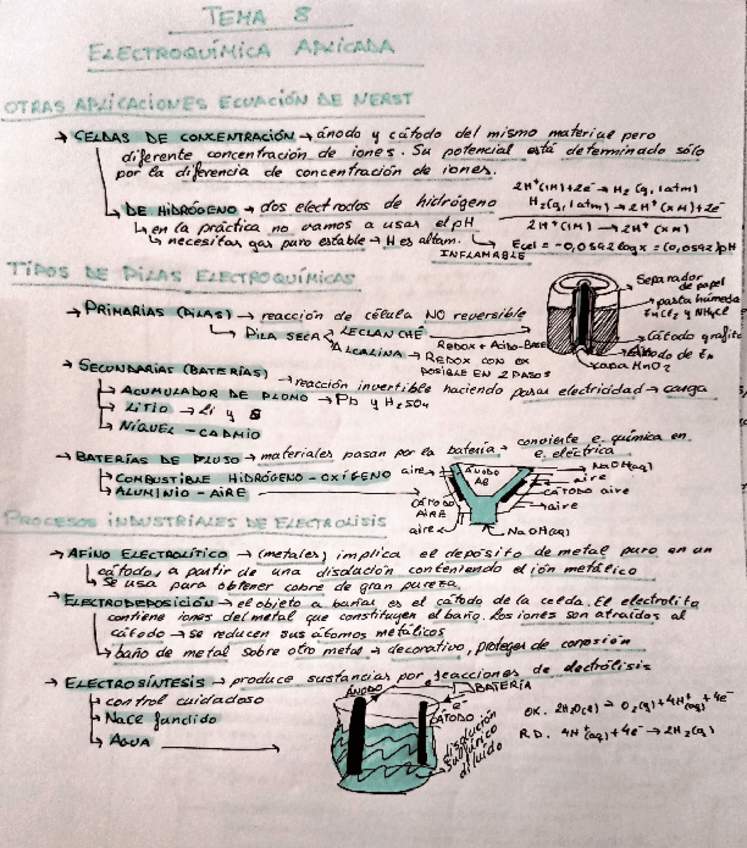 TEMA 8
ELECTROQUÍMICA APLICADA
OTRAS APLICACIONES ECUACIÓN DE NERST
→ CELDAS DE CONCENTRACIÓN → ánodo y cátodo del mismo material pero
diferente concentración de iones. Su potencial está determinado sólo
por la diferencia de concentración de iones.
2H⁺(1M)+2e⁻ → H₂ (g, 1atm)
↳ DE HIDRÓGENO → dos electrodos de hidrógeno
H₂(g, 1atm) → 2H⁺(xM)+2e⁻
↳ en la práctica no vamos a usar el pH
2H⁺(1M) → 2H⁺(xM)
↳ necesitas gas puro estable → H es altam. INFLAMABLE
↳ Ecel = -0,0592 log x = (0,0592) pH
TIPOS DE PILAS ELECTROQUÍMICAS
→ PRIMARIAS (PILAS) → reacción de célula NO reversible
↳ PILA SECA < LECLANCHÉ
REDOX + Ácido-BASE
ALCALINA → REDOX CON OX
POSIBLE EN 2 PASOS
Separador de papel
pasta húmeda
ZnCl₂ y NH₄Cl
Cátodo grafito
Ánodo de Zn
capa MnO₂
→ SECUNDARIAS (BATERÍAS)
→ reacción invertible haciendo pasar electricidad → carga
↳ ACUMULADOR DE PLOMO → Pb y H₂SO₄
↳ LITIO → Li y S
↳ NÍQUEL - CADMIO
→ BATERÍAS DE FLUJO → materiales pasan por la batería → convierte e. química en
e. eléctrica
↳ COMBUSTIBLE HIDRÓGENO - OXÍGENO
↳ ALUMINIO - AIRE
aire
ÁNODO
NaOH(aq)
aire
CÁTODO aire
CÁTODO
AIRE
aire
aire
NaOH(aq)
PROCESOS INDUSTRIALES DE ELECTROLISIS
→ AFINO ELECTROLÍTICO → (metales) implica el depósito de metal puro en un
cátodo, a partir de una disolución conteniendo el ión metálico
↳ Se usa para obtener cobre de gran pureza.
→ ELECTRODEPOSICIÓN → el objeto a bañar es el cátodo de la celda. El electrolito
contiene iones del metal que constituyen el baño. Los iones son atraídos al
cátodo → se reducen sus átomos metálicos
↳ baño de metal sobre otro metal → decorativo, proteger de corrosión
→ ELECTROSÍNTESIS → produce sustancias por reacciones de electrólisis
↳ control cuidadoso
↳ NaCl fundido
↳ AGUA
ÁNODO
e⁻
BATERÍA
e⁻
CÁTODO
disolución
sulfúrico
diluido
OX. 2H₂O(l) → O₂(g)+4H⁺(aq)+4e⁻
RD. 4H⁺(aq)+4e⁻ → 2H₂(g)